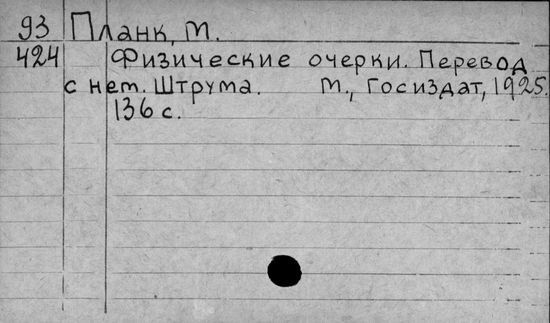 93 Планк, М.
424 Физические очерки. Перевод
с нем. Штрума. М., Госиздат, 1925.
136 с.